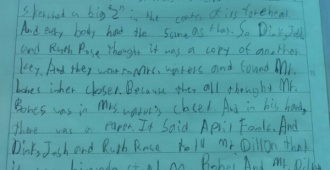 sketched a big "2" in the center of his forehead
And every body had the same as thos. So Dink, Josh
and Ruth Rose thought it was a copy of another
key. And they went Mrs. waters and found Mr.
bones in her closet. Because they all thought Mr.
Bones was in Mrs waters closed. And in his hand,
there was a paper. It said April Fools. And
Dink, Josh and Ruth Rose told Mr. Dillon that
Mr. Bones! And Mr. Dillon